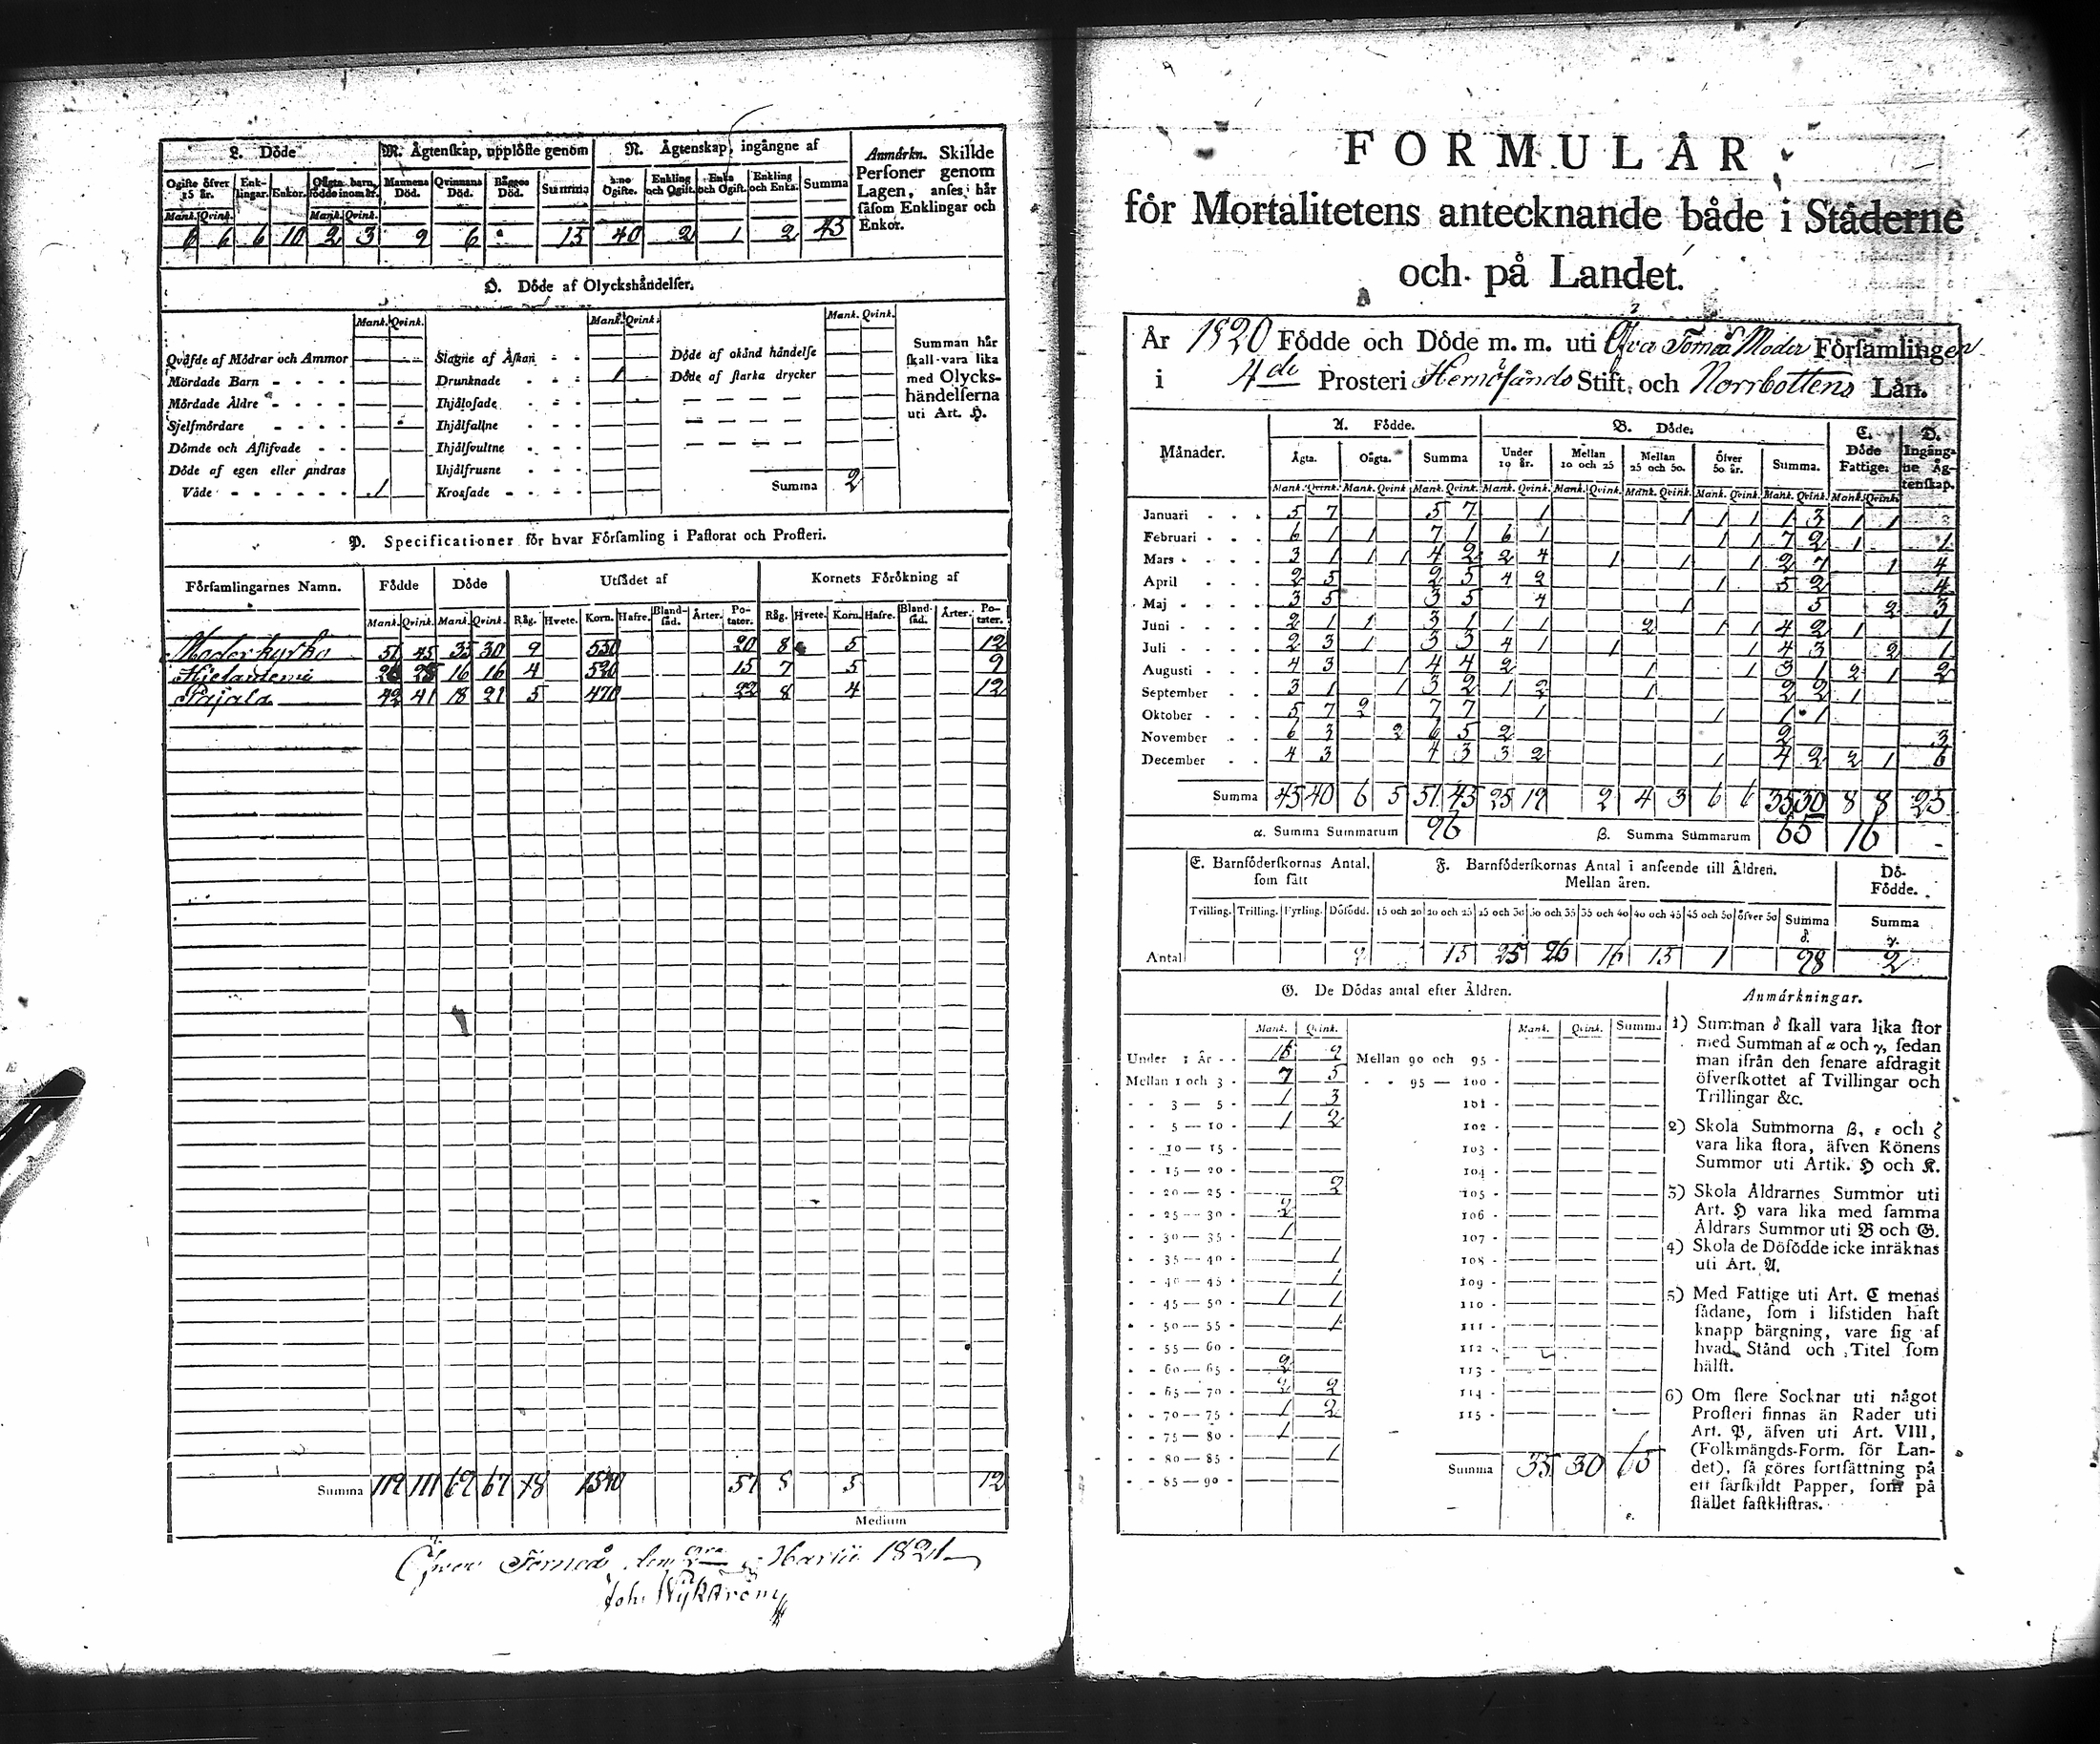 L. Döde
M. Ägtenskap, upplöste genom
N. Ägtenskap, ingångne af
Anmärkn. Skillde Personer genom Lagen, anses här såsom Enklingar och Enkor.
Ogifte öfver 15 år. Enklingar. Enkor. Oägta barn, födde inom år. Mannens Död. Qvinnans Död. Bägges Död. Summa Enkling och Ogift. Enka och Ogift. Enkling och Enka. Summa
Mank. Qvink. Mank. Qvink.
6 6 6 10 2 3 9 6 15 40 2 1 2 45
O. Döde af Olyckshändelser.
Mank. Qvink. Mank. Qvink. Mank. Qvink.
Qväfde af Mödrar och Ammor
Mördade Barn
Mördade Äldre
Sjelfmördare
Dömde och Aflifvade
Döde af egen eller andras
Våde 1
Slagne af Åskan
Drunknade 1
Ihjälosade
Ihjälfallne
Ihjälsvultne
Ihjälfrusne
Krossade
Döde af okänd händelse
Döde af starka drycker
Summa 2
Summan här skall vara lika med Olyckshändelserna uti Art. H.
P. Specificationer för hvar Församling i Pastorat och Prosteri.
Församlingarnes Namn. Födde Döde Utsädet af Kornets Förökning af
Mank. Qvink. Mank. Qvink. Råg. Hvete. Korn. Hafre. Blandsäd. Ärter. Potater. Råg. Hvete. Korn. Hafre. Blandsäd. Ärter. Potater.
Moderkyrka 51 45 35 30 9 550 20 8 5 12
Hietaniemi 16 16 4 520 15 7 5 9
Pajala 42 41 18 21 5 470 22 8 4 12
Summa 119 111 69 67 18 1540 57 5 12
Medium
Öfver Torneå den Martii 1821
Joh. Wykström
FORMULÄR
för Mortalitetens antecknande både i Städerne
och på Landet.
År 1820 Födde och Döde m. m. uti Öfver Torneå Moder Församlingen
i 4de Prosteri Hernösands Stift, och Norrbottens Län.
Månader. A. Födde. B. Döde. C. Döde Fattige. D. Ingångne Ägtenskap.
Ägta. Oägta. Summa Under 10 år. Mellan 10 och 25 Mellan 25 och 50. Öfver 50 år. Summa.
Mank. Qvink. Mank. Qvink. Mank. Qvink. Mank. Qvink. Mank. Qvink. Mank. Qvink. Mank. Qvink. Mank. Qvink. Mank. Qvink.
Januari 5 7 5 7 1 1 1 1 1 3 1 1
Februari 6 1 1 7 1 6 1 1 1 7 2 1 1
Mars 3 1 1 1 4 2 2 4 1 1 1 2 7 1 4
April 2 5 2 5 4 2 1 5 2 4
Maj 3 5 3 5 4 1 5 2 3
Juni 2 1 1 3 1 1 1 2 1 1 4 2 1 1
Juli 2 3 1 3 3 4 1 1 1 4 3 2 1
Augusti 4 3 1 4 4 2 1 1 3 1 2 1 2
September 3 1 1 3 2 1 2 1 2 2 1
Oktober 5 7 2 7 7 1 1 1 1
November 6 3 2 6 5 2 2 3
December 4 3 4 3 3 2 1 4 2 2 1 6
Summa 45 40 6 5 51 45 25 19 2 4 3 6 6 35 30 8 8 25
α. Summa Summarum 96 β. Summa Summarum 65 16
E. Barnföderskornas Antal, som fått
F. Barnföderskornas Antal i anseende till Åldren. Mellan åren.
Döfödde.
Trilling. Trilling. Fyrling. Döfödd. 15 och 20 20 och 25 25 och 30 30 och 35 35 och 40 40 och 45 45 och 50 öfver 50 Summa δ. Summa γ.
Antal 2 15 25 26 16 15 1 98 2
G. De Dödas antal efter Åldren.
Mank. Qvink. Mank. Qvink. Summa
Under 1 År 15 9
Mellan 1 och 3 7 5
3 — 5 1 3
5 — 10 1 2
10 — 15
15 — 20
20 — 25 2
25 — 30 2
30 — 35 1
35 — 40 1
40 — 45 1
45 — 50 1 1
50 — 55 1
55 — 60
60 — 65 2
65 — 70 2 2
70 — 75 1 2
75 — 80 1
80 — 85 1
85 — 90
Mellan 90 och 95
95 — 100
101
102
103
104
105
106
107
108
109
110
111
112
113
114
115
Summa 35 30 65
ε.
Anmärkningar.
1) Summan δ skall vara lika stor
med Summan af α och γ, sedan
man ifrån den senare afdragit
öfverskottet af Tvillingar och
Trillingar &c.
2) Skola Summorna β, ε och ζ
vara lika stora, äfven Könens
Summor uti Artik. H och K.
3) Skola Åldrarnes Summor uti
Art. H vara lika med samma
Åldrars Summor uti B och G.
4) Skola de Döfödde icke inräknas
uti Art. A.
5) Med Fattige uti Art. C menas
sådane, som i lifstiden haft
knapp bärgning, vare sig af
hvad Stånd och Titel som
hälst.
6) Om flere Socknar uti något
Prosteri finnas än Rader uti
Art. P, äfven uti Art. VIII,
(Folkmängds-Form. för Landet), så göres fortsättning på
ett särskildt Papper, som på
stället fastklistras.